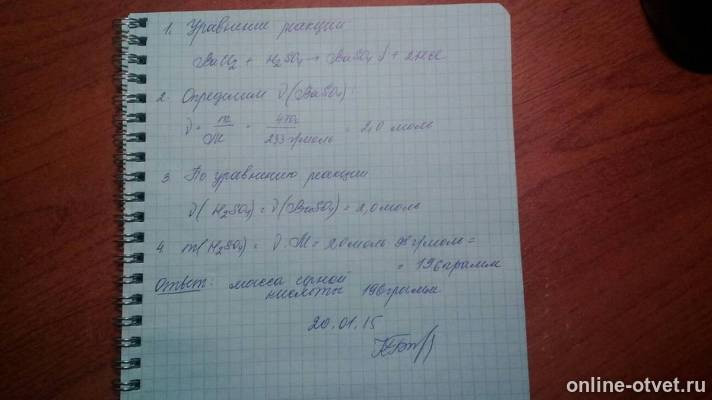 1. Уравнение реакции
BaCl2 + H2SO4 → BaSO4↓ + 2HCl
2. Определим ν(BaSO4):
ν = m/M = 470г/233г/моль = 2,0 моль
3. По уравнению реакции
ν(H2SO4) = ν(BaSO4) = 2,0моль
4. m(H2SO4) = ν·M = 2,0моль · 98г/моль =
= 196грамм
Ответ: масса серной
кислоты 196грамм
20.01.15
online-otvet.ru